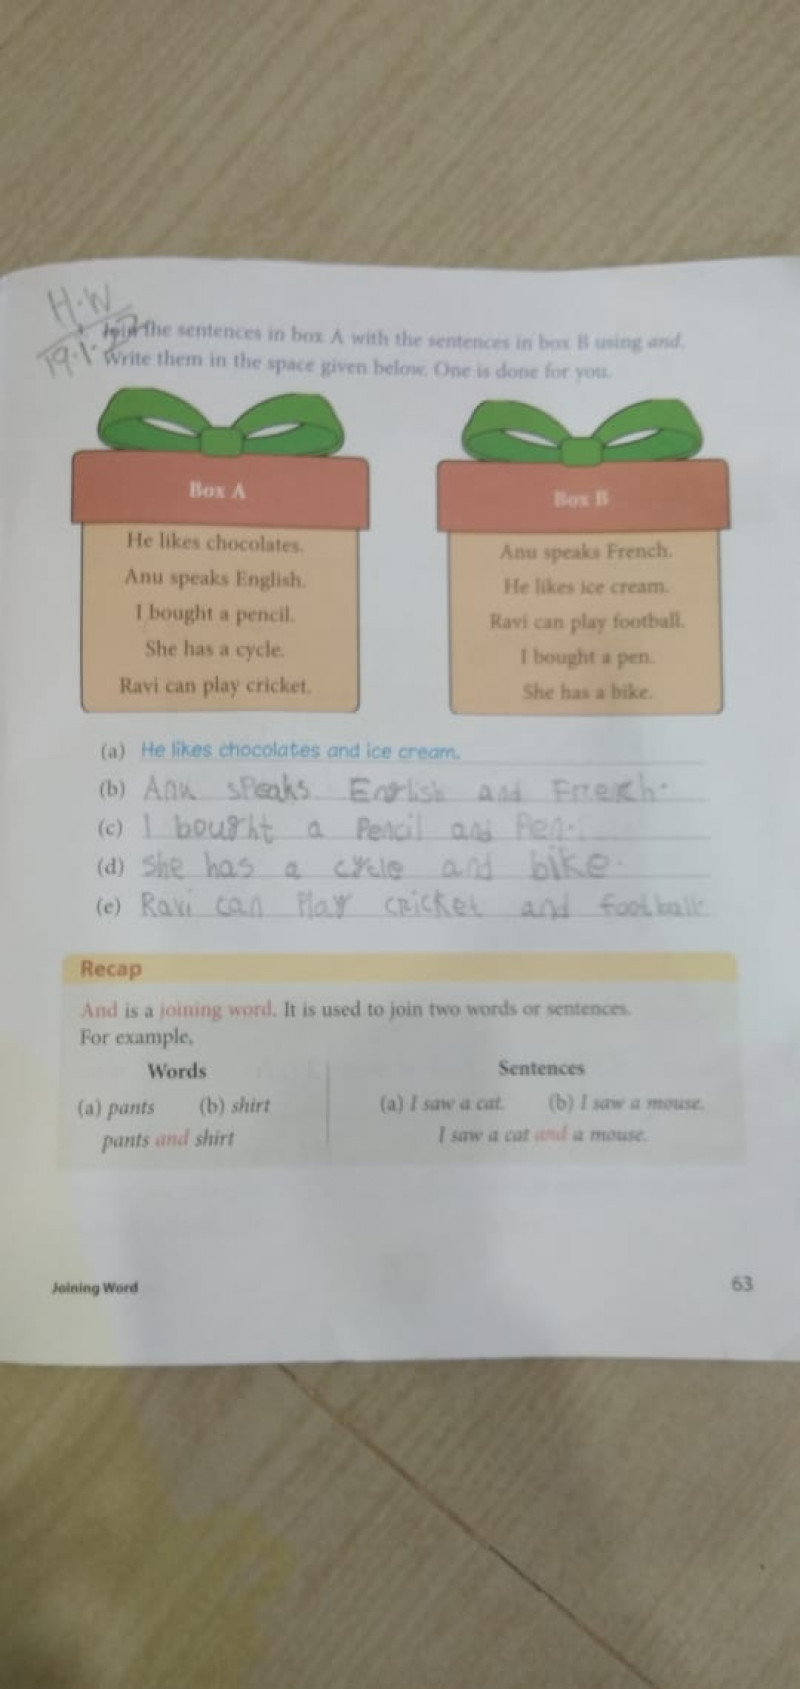 H.W
19.1.
Join the sentences in box A with the sentences in box B using and.
Write them in the space given below. One is done for you.
Box A
He likes chocolates.
Anu speaks English.
I bought a pencil.
She has a cycle.
Ravi can play cricket.
Box B
Anu speaks French.
He likes ice cream.
Ravi can play football.
I bought a pen.
She has a bike.
(a) He likes chocolates and ice cream.
(b) Anu speaks English and French.
(c) I bought a Pencil and Pen.
(d) She has a cycle and bike.
(e) Ravi can Play cricket and football
Recap
And is a joining word. It is used to join two words or sentences.
For example,
Words
(a) pants (b) shirt
pants and shirt
Sentences
(a) I saw a cat. (b) I saw a mouse.
I saw a cat and a mouse.
Joining Word
63